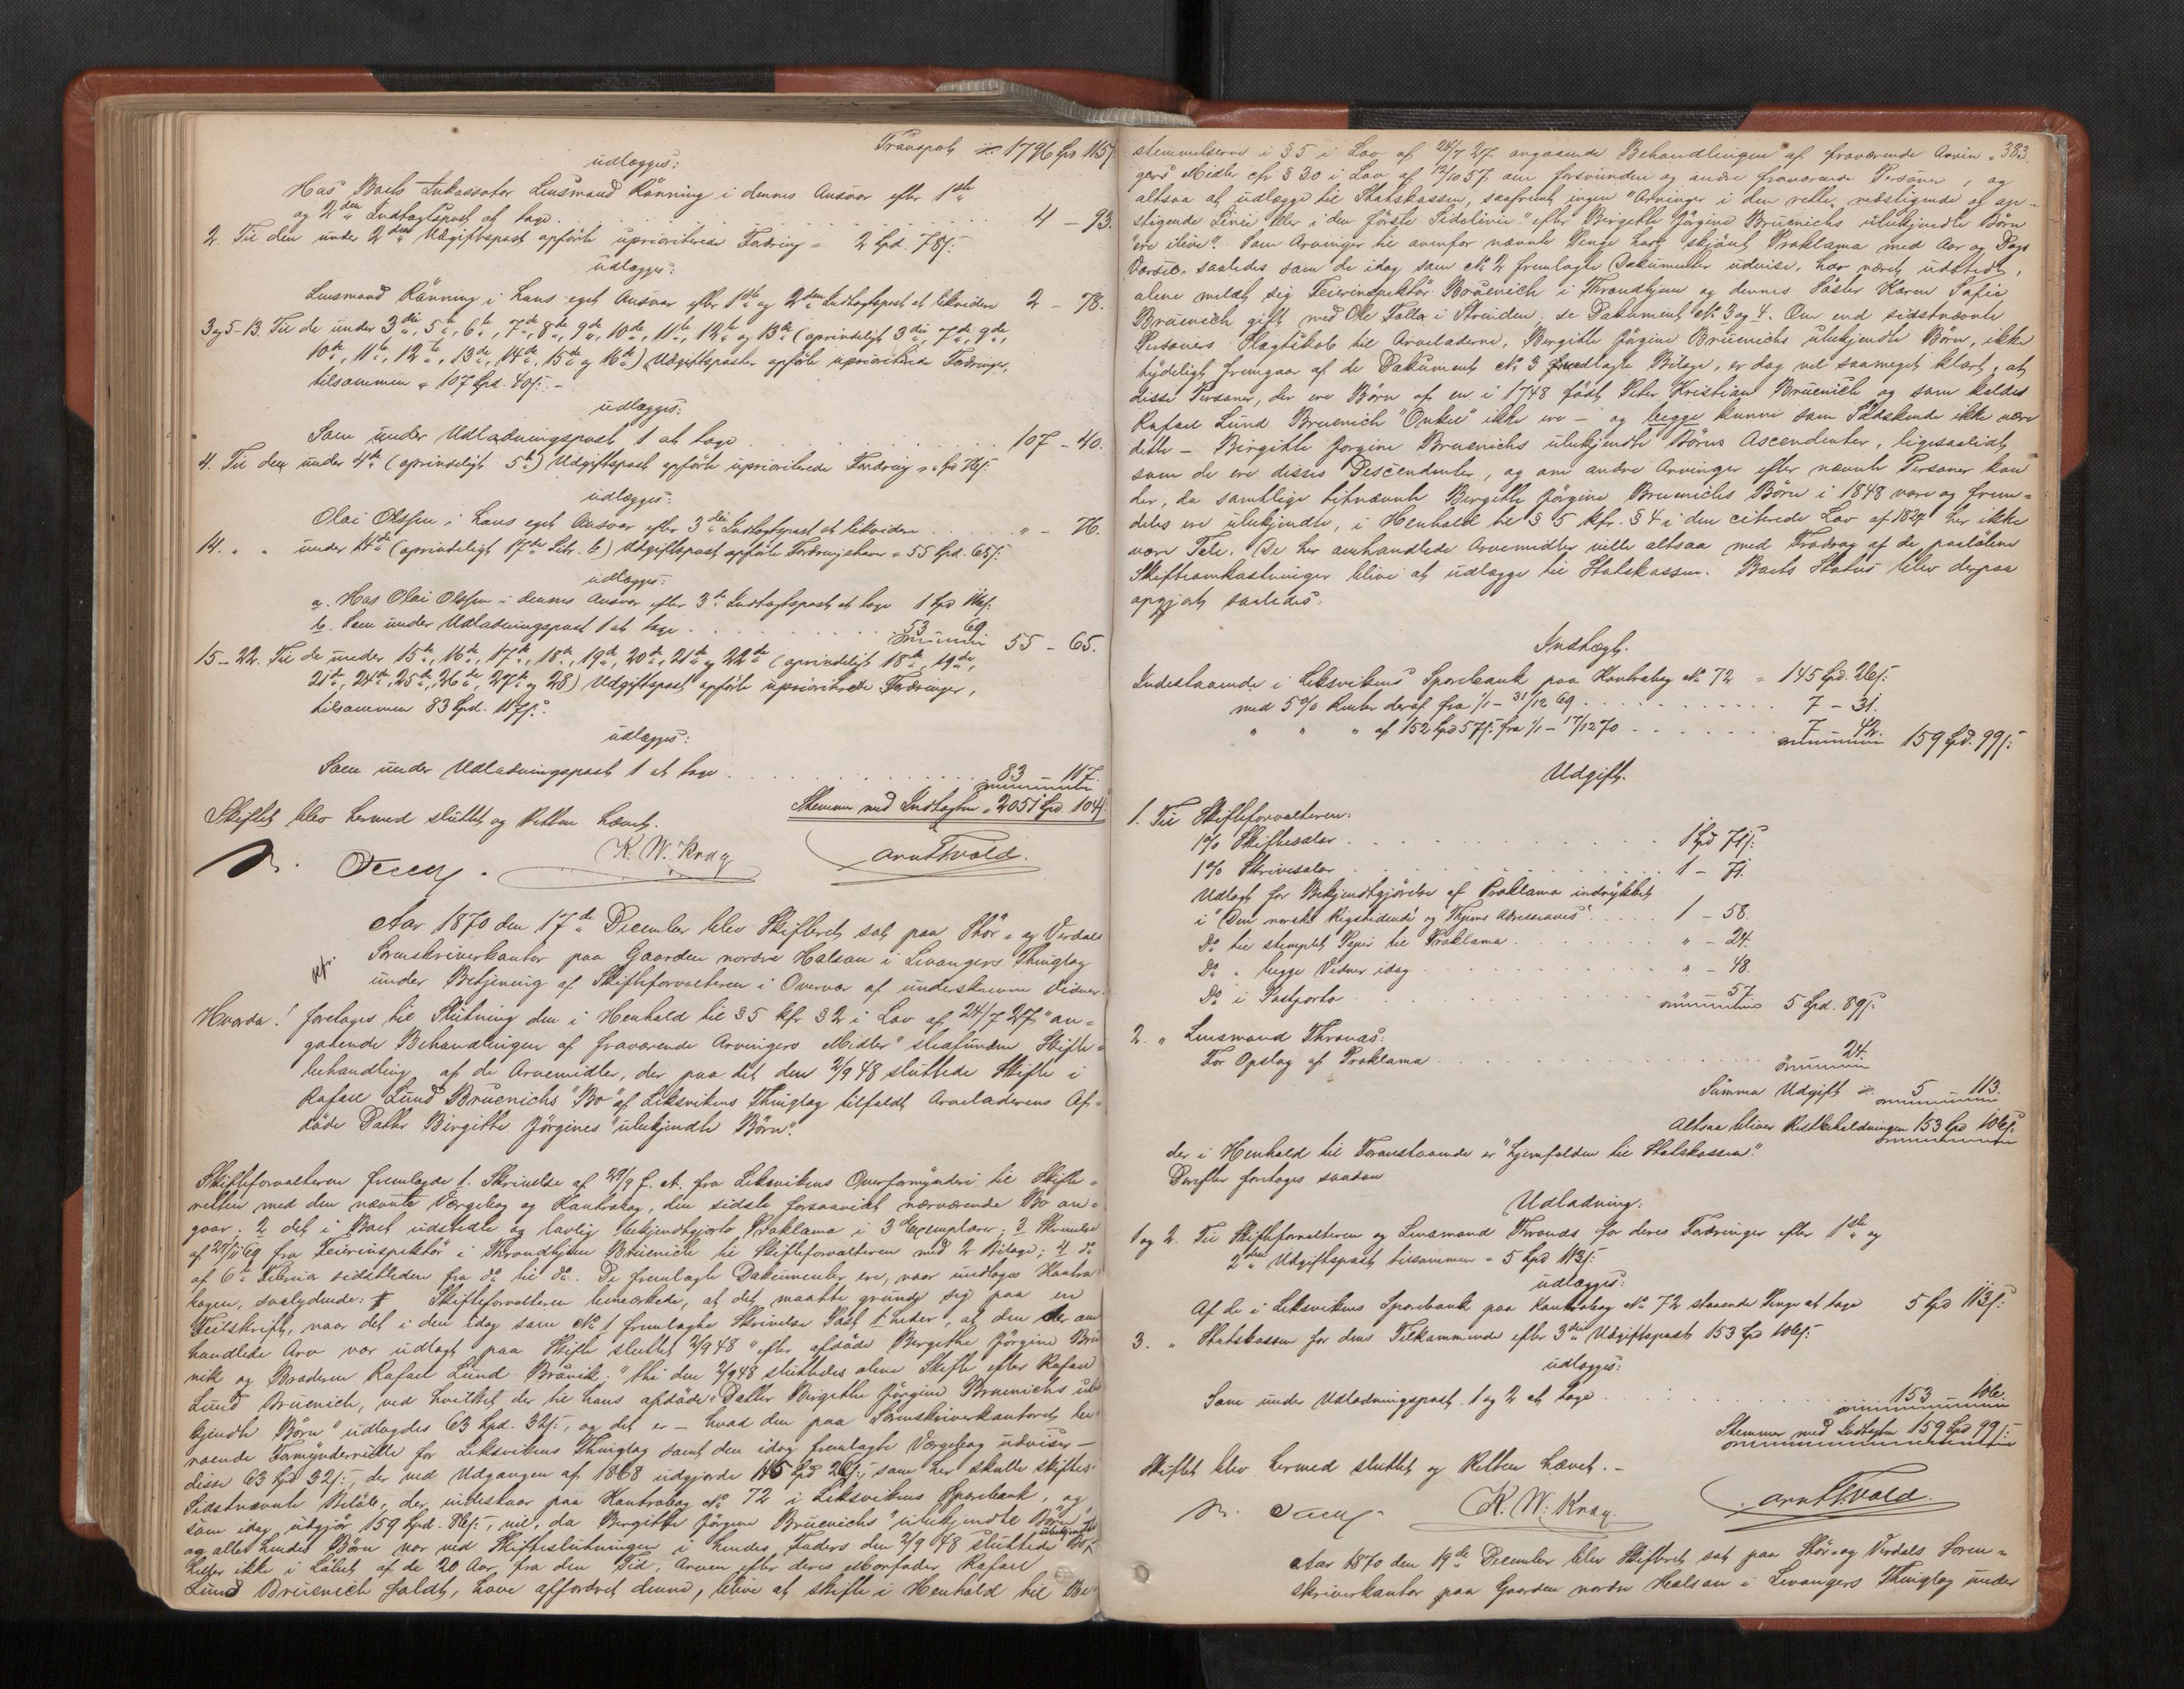 Transport = 1796 Spd 115 s:
udlægges:
Hos Boets Inkassator Lensmand Rønning i dennes Ansvar efter 1ste
og 2den Indtægtspost at tage . . . 4 – 93.
2. Til den under 2den Udgiftspost opførte uprioriterede Fodring = 2 Spd. 78 s:
udlægges:
Lensmand Rønning i hans eget Ansvar efter 1ste og 2den Indtægtspost at likvidere 2 – 78.
3 og 5–13. Til de under 3die, 5te, 6te, 7de, 8de, 9de, 10de, 11te, 12te og 13de (oprindeligt 3die, 7de, 9de,
10de, 11te, 12te, 13de, 14de, 15de og 16de) Udgiftsposter opførte uprioriterede Fodringer,
tilsammen = 107 Spd. 40 s: –
udlægges:
Som under Udlodningspost 1 at tage . . . 107 – 40.
4. Til den under 4de (oprindeligt 5te) Udgiftspost opførte uprioriterede Fordring
udlægges:
Olai Olssen i hans eget Ansvar efter 3die Indtægtspost at likvidere . . . " –
14. " " under 14de (oprindeligt 17de Litr. b) Udgiftspost opførte Fordringshaver = 55 Spd. 65 s:
udlægges:
a. Hos Olai Olssen i dennes Ansvar efter 3die Indtægtspost at tage 1 Spd
b. Som under Udlodningspost 1 at tage . . . 53 69 55 – 65.
15–22. Til de under 15de, 16de, 17de, 18de, 19de, 20de, 21de og 22de (oprindeligt 18de, 19de,
21de, 24de, 25de, 26de, 27de og 28) Udgiftspost opførte uprioriterede Fordringer,
tilsammen 83 Spd. 117 s:
udlægges:
Som under Udlodningspost 1 at tage . . . 83 – 117.
Stemmer med Indtægten = 2051 Spd 104 s:
Skiftet blev hermed sluttet og Retten hævet.
K. W. Krag Arnt Tvold.
Aar 1870 den 17de December blev Skifteret sat paa Stør- og Verdals
Sorenskriverkontor paa Gaarden nordre Halsan i Levangers Thinglag
under Betjening af Skifteforvalteren i Overvær af underskrevne Vidner.
Hvorda! foretoges til Slutning den i Henhold til § 5 kfr § 2 i Lov af 24/7 27 "an-
gaaende Behandlingen af fraværende Arvingers Midler" stedfundne Skifte-
behandling af de Arvemidler, der paa det den 2/9 48 sluttede Skifte i
Rafael Lund Brüenichs "Bo" af Leksvikens Thinglag tilfaldt Arveladerens Af-
døde Datter Birgitte Jørgines "ubekjendte Børn".
Skifteforvalteren fremlagde 1. Skrivelse af 29/9 f. A. fra Leksvikens Overformynderi til Skifte-
retten med den nævnte Værgebog og Kontrabog, den sidste forsaavidt nærværende Bo an-
gaar. 2 det i Boet udstedte og lovlig bekjendtgjorte Proklama i 3 Exemplarer. 3 Skrivelse
af 29/11 69 fra Feierinspektør i Throndhjem Brüenich til Skifteforvalteren med 2 Bilage; 4 do
af 6te Februar sidstleden fra do til do. De fremlagte Dokumenter ere, naar undtages Kontra-
bogen, saalydende: # Skifteforvalteren bemærkede, at det maatte grunde sig paa en
Feilskrift, naar det i den idag som No 1 fremlagte Skrivelse Post 1 heder, at den der om-
handlede Arv var udlagt paa Skifte sluttet 2/9 48 "efter afdøde Bergithe Jørgine Brü-
nik og Broderen Rafael Lund Brünik", thi den 2/9 48 sluttedes alene Skifte efter Rafael
Lund Brüenich, ved hvilket der til hans afdøde "Datter Birgitte Jørgine Bruenichs ube-
kjendte Børn" udlagdes 63 Spd. 32 s:, og det er – hvad den paa Sorenskriverkontoret be-
roende Formynderrulle for Leksvikens Thinglag samt den idag fremlagte Værgebog udviser –
disse 63 Spd 32 s:, der ved Udgangen af 1868 udgjorde 145 Spd 26 s:, som her skulle skiftes.
Sidstnævnte Beløb, der indestaar paa Kontrabog No 72 i Leksvikens Sparebank, og
som idag udgjør 159 Spd. s:, vil, da Birgitte Jørgine Brüenichs "ubekjendte Børn",
og alle hendes Børn var ved Skifteslutningen i hendes Faders den 2/9 48 sluttede Bo ubekjendte,
heller ikke i Løbet af de 20 Aar, fra den Tid, Arven efter deres Morfader Rafael
Lund Brüenich faldt, have affordret denne, blive at skifte i Henhold til Be-
383.
stemmelserne i § 5 i Lov af 24/7 27 angaaende Behandlingen af fraværende Arvin-
gers Midler cfr § 30 i Lov af 12/10 57 om forsvundne og andre fraværende Personer, og
altsaa at udlægge til Statskassen, saafremt ingen "Arvinger i den rette nedstigende og op-
stigende Linie eller i den første Sidelinie" efter Birgitte Jørgine Brüenichs ubekjendte Børn
"ere ilive". Som Arvinger til ovenfor nævnte Penge har, skjønt Proklama med Aar og Dags
Varsel, saaledes som de idag som No 2 fremlagte Dokumenter udvise, har været udstedt,
alene meldt sig Feierinspektør Brüenich i Throndhjem og dennes Søster Karen Sofie
Brüenich gift med Ole Falla i Struiden; se Dokument No 3 og 4. Om end sidstnævnte
Personers Slægtskab til Arveladerne, Birgitte Jørgine Brüenichs ubekjendte Børn, ikke
tydeligt fremgaar af de Dokument No 3 vedlagte Bilage, er dog vel saameget klart, at
disse Personer, der ere Børn af en i 1748 født Peter Kristian Brüenich og som kaldes
Rafael Lund Bruenich "Onkel" ikke ere – og begge kunne som Sødskende ikke være
dette – Birgitte Jorgine Bruenichs ubekjendte Børns Ascendenter, ligesaalidt
som de ere disses Descendenter, og om andre Arvinger efter nævnte Personer kan
der, da samtlige bitnævnte Birgitte Jørgine Bruenichs Børn i 1848 vare og frem-
deles ere ubekjendte, i Henhold til § 5 kfr. § 4 i den citerede Lov af 1827 her ikke
være Tale. De her omhandlede Arvemidler ville altsaa med Fradrag af de paaløbne
Skifteomkostninger blive at udlægge til Statskassen. Boets Status blev derpaa
opgjort saaledes:
Indtægt.
Indestaaende i Leksvikens Sparebank paa Kontrabog No 72 = 145 Spd. 26 s:
med 5% Renter deraf fra 1/1 – 31/12 69 . . . 7 – 31.
" " " af 152 Spd 57 s: fra 1/1 – 17/12 70 . . . 7 42. 159 Spd. 99 s:
Udgift.
1. Til Skifteforvalteren:
1% Skiftesalær . . . 1 Spd 71 s:
1% Skrivesalær . . . 1 – 71.
Udlagt for Bekjendtgjørelse af Proklama indrykket
i "Den norske Rigstidende" og "Thjems Adresseavis" . . . 1 – 58.
Do til stemplet Papir til Proklama . . . " – 24.
Do " begge Vidner idag . . . " – 48.
Do i Postporto . . . 57. 5 Spd. 89 s:
2. " Lensmand Thronæs:
For Opslag af Proklama . . . 24.
Summa Udgift = 5 – 113.
Altsaa bliver Restbeholdningen 153 Spd 106 s:
der i Henhold til Foranstaaende er "hjemfalden til Statskassen".
Derefter foretoges saadan
Udlodning:
1 og 2. Til Skifteforvalteren og Lensmand Thronæs for deres Fodringer efter 1ste og
2den Udgiftspost tilsammen = 5 Spd 113 s:
udlægges:
Af de i Leksvikens Sparebank paa Kontrabog No 72 staaende Penge at tage 5 Spd 113 s:
3. " Statskassen for dens Tilkommende efter 3die Udgiftspost 153 Spd 106 s:
udlægges:
Som under Udlodningspost 1 og 2 at tage . . . 153 – 106.
Stemmer med Indtægten 159 Spd 99 s:
Skiftet blev hermed sluttet og Retten hævet. –
K. W. Krag. Arnt Tvold.
Aar 1870 den 19de December blev Skifteret sat paa Stør- og Verdals Soren-
skriverkontor paa Gaarden nordre Halsan i Levangers Thinglag under